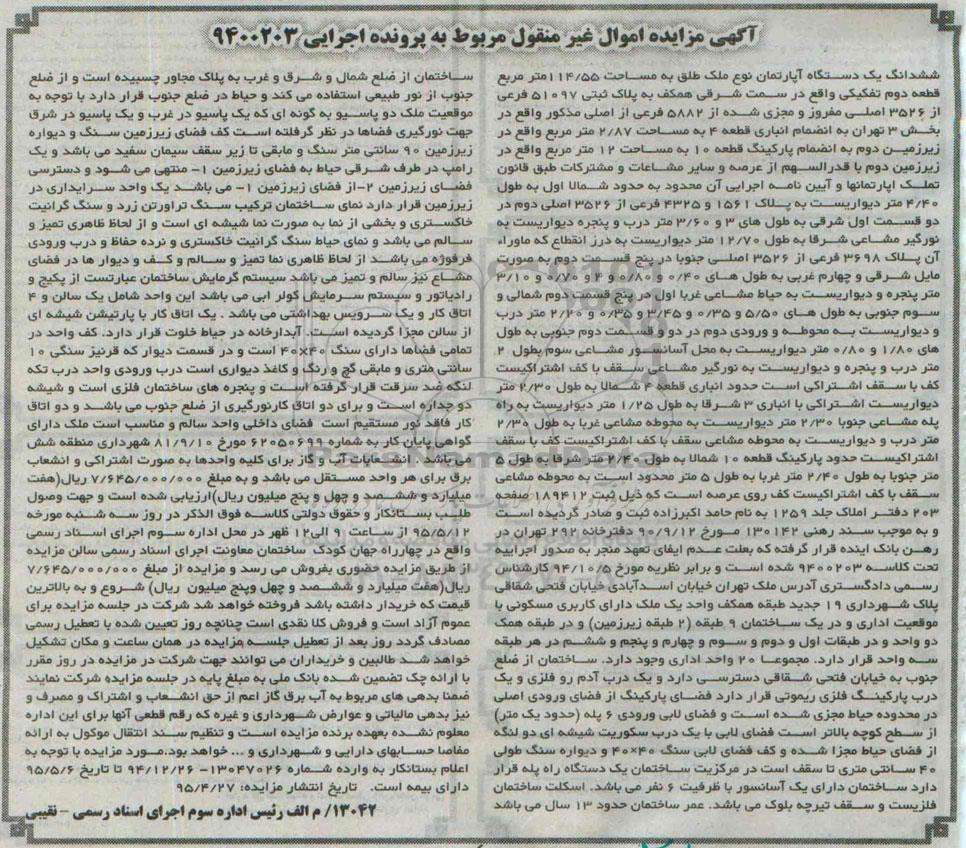 آگهی مزایده اموال غیر منقول مربوط به پرونده اجرایی ۹۴۰۰۲۰۳
ششدانگ یک دستگاه آپارتمان نوع ملک طلق به مساحت ۱۱۴/۵۵متر مربع
قطعه دوم تفکیکی واقع در سمت شرقی همکف به پلاک ثبتی ۵۱۰۹۷ فرعی
از ۳۵۲۶ اصلی مفروز و مجزی شده از ۵۸۸۲ فرعی از اصلی مذکور واقع در
بخش ۳ تهران به انضمام انباری قطعه ۴ به مساحت ۲/۸۷ متر مربع واقع در
زیرزمین دوم به انضمام پارکینگ قطعه ۱۰ به مساحت ۱۲ متر مربع واقع در
زیرزمین دوم با قدرالسهم از عرصه و سایر مشاعات و مشترکات طبق قانون
تملک اپارتمانها و آیین نامه اجرایی آن محدود به حدود شمالا اول به طول
۴/۴۰ متر دیواریست به پلاک ۱۵۶۱ و ۴۳۲۵ فرعی از ۳۵۲۶ اصلی دوم در
دو قسمت اول شرقی به طول های ۳ و ۳/۶۰ متر درب و پنجره دیواریست به
نورگیر مشاعی شرقا به طول ۱۲/۷۰ متر دیواریست به درز انقطاع که ماوراء
آن پلاک ۳۶۹۸ فرعی از ۳۵۲۶ اصلی جنوبا در پنج قسمت دوم به صورت
مایل شرقی و چهارم غربی به طول های ۰/۴۰ و ۰/۸۰ و ۴ و ۰/۷۰ و ۳/۱۰
متر پنجره و دیواریست به حیاط مشاعی غربا اول در پنج قسمت دوم شمالی و
سوم جنوبی به طول های ۵/۵۰ و ۰/۳۵ و ۳/۴۵ و ۰/۳۵ و ۲/۲۰ متر درب
و دیواریست به محوطه و ورودی دوم در دو و قسمت دوم جنوبی به طول
های ۱/۸۰ و ۰/۸۰ متر دیواریست به محل آسانسور مشاعی سوم بطول ۲
متر درب و پنجره و دیواریست به نورگیر مشاعی سقف با کف اشتراکیست
کف با سقف اشتراکی است حدود انباری قطعه ۴ شمالا به طول ۲/۳۰ متر
دیواریست اشتراکی با انباری ۳ شرقا به طول ۱/۲۵ متر دیواریست به راه
پله مشاعی جنوبا ۲/۳۰ متر دیواریست به محوطه مشاعی غربا به طول ۲/۳۰
متر درب و دیواریست به محوطه مشاعی سقف با کف اشتراکیست کف با سقف
اشتراکیست حدود پارکینگ قطعه ۱۰ شمالا به طول ۲/۴۰ متر شرقا به طول ۵
متر جنوبا به طول ۲/۴۰ متر غربا به طول ۵ متر محدود است به محوطه مشاعی
سقف با کف اشتراکیست کف روی عرصه است که ذیل ثبت ۱۸۹۴۱۲ صفحه
۲۰۳ دفتر املاک جلد ۱۲۵۹ به نام حامد اکبرزاده ثبت و صادر گردیده است
و به موجب سند رهنی ۱۳۰۱۴۲ مورخ ۹۰/۹/۱۲ دفترخانه ۲۹۲ تهران در
رهن بانک اینده قرار گرفته که بعلت عدم ایفای تعهد منجر به صدور اجراییه
تحت کلاسه ۹۴۰۰۲۰۳ شده است و برابر نظریه مورخ ۹۴/۱۰/۵ کارشناس
رسمی دادگستری آدرس ملک تهران خیابان اسدآبادی خیابان فتحی شقاقی
پلاک شهرداری ۱۹ جدید طبقه همکف واحد یک ملک دارای کاربری مسکونی با
موقعیت اداری و در یک ساختمان ۹ طبقه (۲ طبقه زیرزمین) و در طبقه همک
دو واحد و در طبقات اول و دوم و سوم و چهارم و پنجم و ششم در هر طبقه
سه واحد قرار دارد. مجموعا ۲۰ واحد اداری وجود دارد. ساختمان از ضلع
جنوب به خیابان فتحی شقاقی دسترسی دارد و یک درب آدم رو فلزی و یک
درب پارکینگ فلزی ریموتی قرار دارد فضای پارکینگ از فضای ورودی اصلی
در محدوده حیاط مجزی شده است و فضای لابی ورودی ۶ پله (حدود یک متر)
از سطح کوچه بالاتر است فضای لابی با یک درب سکوریت شیشه ای دو لنگه
از فضای حیاط مجزا شده و کف فضای لابی سنگ ۴۰×۴۰ و دیواره سنگ طولی
۴۰ سانتی متری تا سقف است در مرکزیت ساختمان یک دستگاه راه پله قرار
دارد ساختمان دارای یک آسانسور با ظرفیت ۶ نفر می باشد. اسکلت ساختمان
فلزیست و سقف تیرچه بلوک می باشد. عمر ساختمان حدود ۱۳ سال می باشد
ساختمان از ضلع شمال و شرق و غرب به پلاک مجاور چسبیده است و از ضلع
جنوب از نور طبیعی استفاده می کند و حیاط در ضلع جنوب قرار دارد با توجه به
موقعیت ملک دو پاسیو به گونه ای که یک پاسیو در غرب و یک پاسیو در شرق
جهت نورگیری فضاها در نظر گرفته است کف فضای زیرزمین سنگ و دیواره
زیرزمین ۹۰ سانتی متر سنگ و مابقی تا زیر سقف سیمان سفید می باشد و یک
رامپ در طرف شرقی حیاط به فضای زیرزمین ۱- منتهی می شود و دسترسی
فضای زیرزمین ۲-از فضای زیرزمین ۱- می باشد یک واحد سرایداری در
زیرزمین قرار دارد نمای ساختمان ترکیب سنگ تراورتن زرد و سنگ گرانیت
خاکستری و بخشی از نما به صورت نما شیشه ای است و از لحاظ ظاهری تمیز و
سالم می باشد و نمای حیاط سنگ گرانیت خاکستری و نرده حفاظ و درب ورودی
فرفوژه می باشد از لحاظ ظاهری نما تمیز و سالم و کف و دیوار ها در فضای
مشاع نیز سالم و تمیز می باشد سیستم گرمایش ساختمان عبارتست از پکیج و
رادیاتور و سیستم سرمایش کولر ابی می باشد این واحد شامل یک سالن و ۴
اتاق کار و یک سرویس بهداشتی می باشد . یک اتاق کار با پارتیشن شیشه ای
از سالن مجزا گردیده است. آبدارخانه در حیاط خلوت قرار دارد. کف واحد در
تمامی فضاها دارای سنگ ۴۰×۴۰ است و در قسمت دیوار که قرنیز سنگی ۱۰
سانتی متری و مابقی گچ و رنگ و کاغذ دیواری است درب ورودی واحد درب تکه
لنگه ضد سرقت قرار گرفته است و پنجره های ساختمان فلزی است و شیشه
دو جداره است و برای دو اتاق کارنورگیری از ضلع جنوب می باشد و دو اتاق
کار فاقد نور مستقیم است فضای داخلی واحد سالم و مناسب است ملک دارای
گواهی پایان کار به شماره ۶۲۰۵۰۶۹۹ مورخ ۸۱/۹/۱۰ شهرداری منطقه شش
می باشد . انشعابات آب و گاز برای کلیه واحدها به صورت اشتراکی و انشعاب
برق برای هر واحد مستقل می باشد و به مبلغ ۷/۶۴۵/۰۰۰/۰۰۰ ریال(هفت
میلیارد و ششصد و چهل و پنج میلیون ریال)ارزیابی شده است و جهت وصول
طلب بستانکار و حقوق دولتی کلاسه فوق الذکر در روز سه شنبه مورخه
۹۵/۵/۱۲ از ساعت ۹ الی۱۲ ظهر در محل اداره سوم اجرای اسناد رسمی
واقع در چهارراه جهان کودک ساختمان معاونت اجرای اسناد رسمی سالن مزایده
از طریق مزایده حضوری بفروش می رسد و مزایده از مبلغ ۷/۶۴۵/۰۰۰/۰۰۰
ریال(هفت میلیارد و ششصد و چهل وپنج میلیون ریال) شروع و به بالاترین
قیمت که خریدار داشته باشد فروخته خواهد شد شرکت در جلسه مزایده برای
عموم آزاد است و فروش کلا نقدی است چنانچه روز تعیین شده با تعطیل رسمی
مصادف گردد روز بعد از تعطیل جلسه مزایده در همان ساعت و مکان تشکیل
خواهد شد طالبین و خریداران می توانند جهت شرکت در مزایده در روز مقرر
با ارائه چک تضمین شده بانک ملی به مبلغ پایه در جلسه مزایده شرکت نمایند
ضمنا بدهی های مربوط به آب برق گاز اعم از حق انشعاب و اشتراک و مصرف و
نیز بدهی مالیاتی و عوارض شهرداری و غیره که رقم قطعی آنها برای این اداره
معلوم نشده بعهده برنده مزایده است و تنظیم سند انتقال موکول به ارائه
مفاصا حسابهای دارایی و شهرداری و ... خواهد بود.مورد مزایده با توجه به
اعلام بستانکار به وارده شماره ۱۳۰۴۷۰۲۶- ۹۴/۱۲/۲۶ تا تاریخ ۹۵/۵/۶
دارای بیمه است. تاریخ انتشار مزایده: ۹۵/۴/۲۷
۱۳۰۴۲/ م الف رئیس اداره سوم اجرای اسناد رسمی – نقیبی